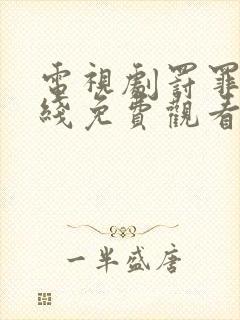 電視劇罸罪
綫免費觀看
一半盛唐